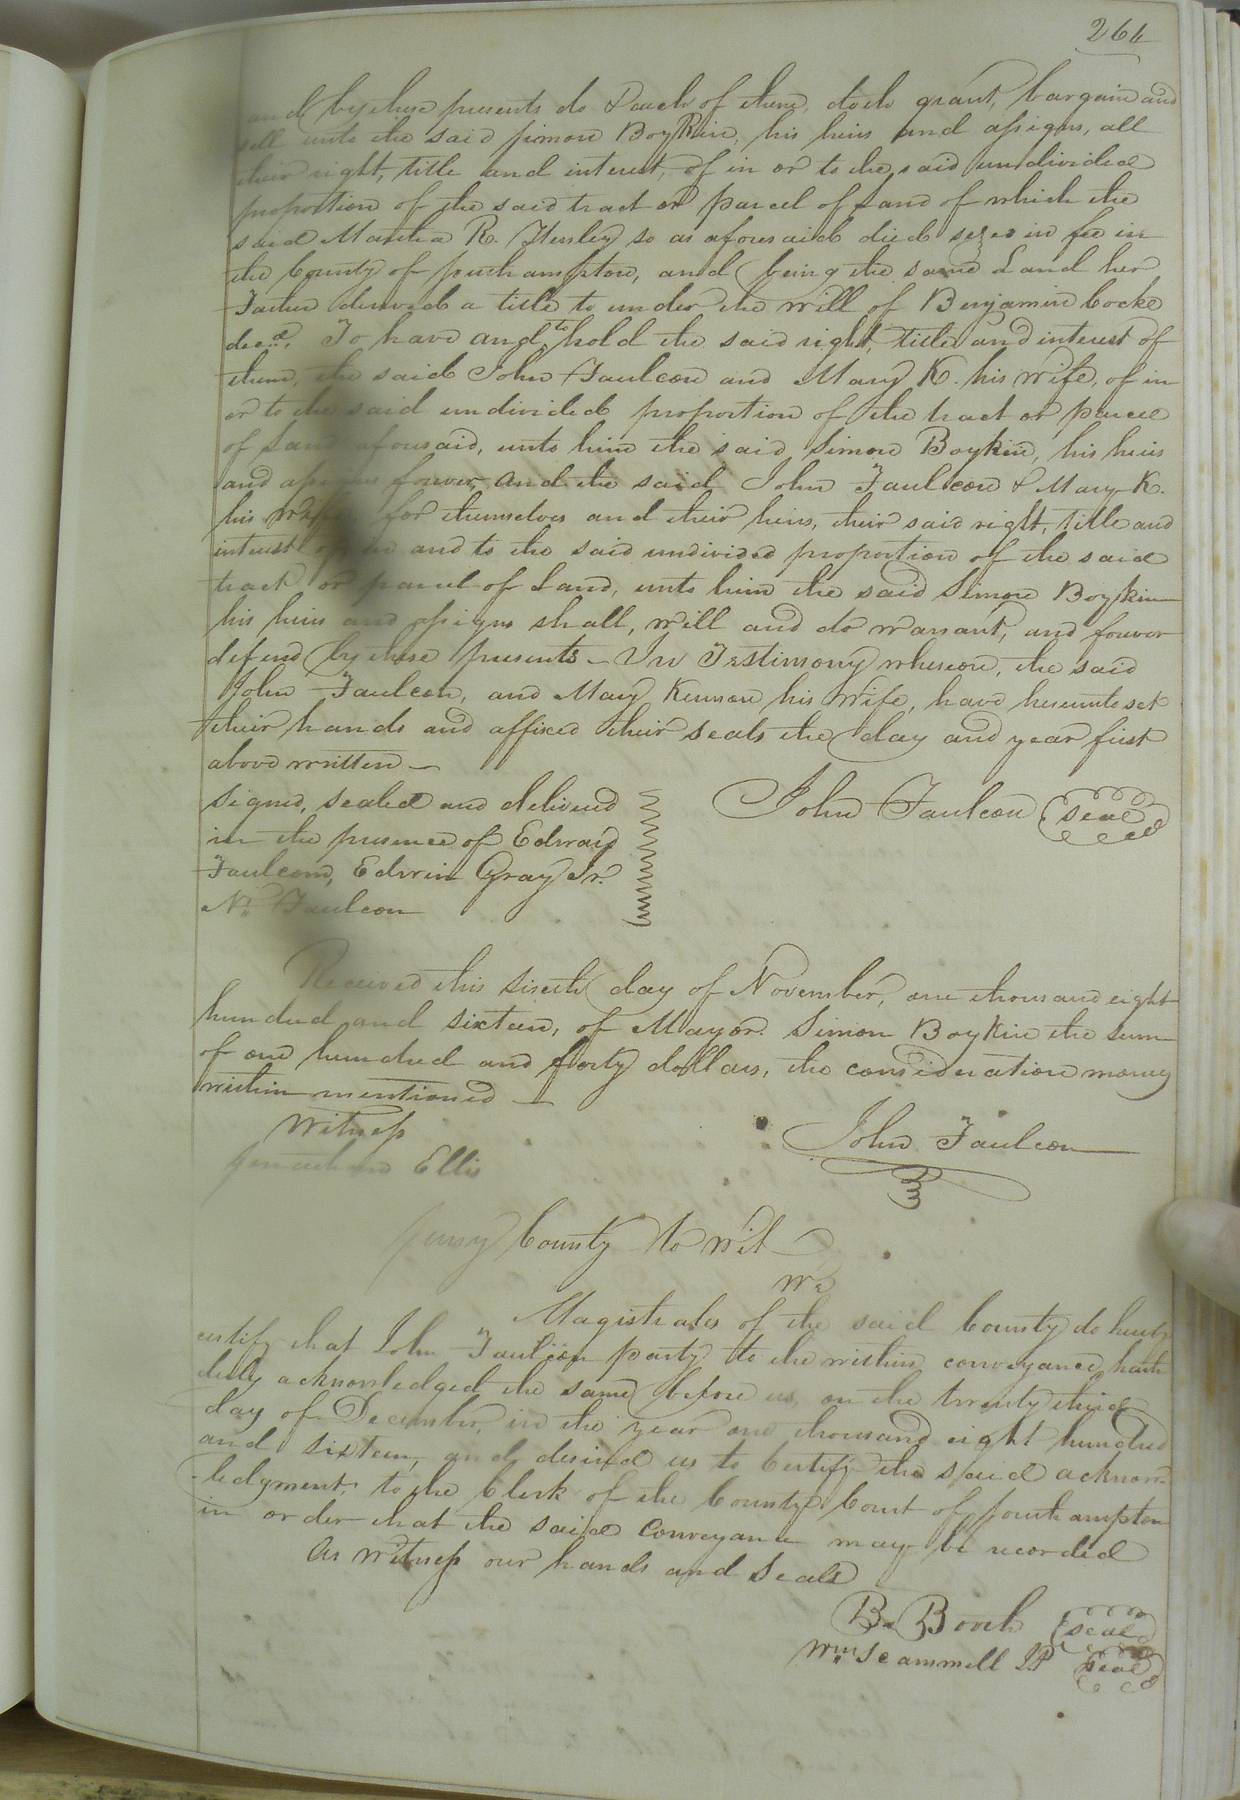 264
and by these presents do & each of them, doth grant, bargain and
sell unto the said Simon Boykin, his heirs and assigns, all
their right, title and interest, of in or to the said undivided
proportion of the said tract or parcel of Land of which the
said Martha R. Hersley so as aforesaid died seized in fee in
the County of Southampton, and being the same Land her
Father derived a title to under the will of Benjamin Cocke
decd. To have and to hold the said right, title and interest of
them, the said John Faulcon and Mary K. his wife, of in
or to the said undivided proportion of the tract or parcel
of Land aforesaid, unto him the said Simon Boykin, his heirs
and assigns forever, And the said John Faulcon & Mary K.
his wife, for themselves and their heirs, their said right, title and
interest of in and to the said undivided proportion of the said
tract or parcel of Land, unto him the said Simon Boykin
his heirs and assigns shall, will and do warrant, and forever
defend by these presents - In Testimony whereon, the said
John Faulcon, and Mary Kennon his Wife, have hereunto set
their hands and affixed their seals the day and year first
above written -
Signed, sealed and delivered
in the presence of Edward
Faulcon, Edwin Gray Jr.
Ns. Faulcon
John Faulcon seal
Received this sixth day of November, one thousand eight
hundred and sixteen, of Mayor. Simon Boykin the sum
of one hundred and forty dollars, the consideration money
within mentioned -
Witness
Ellis
John Faulcon
Surry County to wit
We
Magistrates of the said County do hereby
certify that John Faulcon party to the within conveyance, hath
duly acknowledged the same before us, on the twenty third
day of December, in the year one thousand eight hundred
and sixteen, and desired us to Certify the said acknow-
-ledgment, to the Clerk of the County Court of Southampton
in order that the said Conveyance may be recorded
As witness our hands and seals
B. Booth seal
Wm. Scammell JP seal